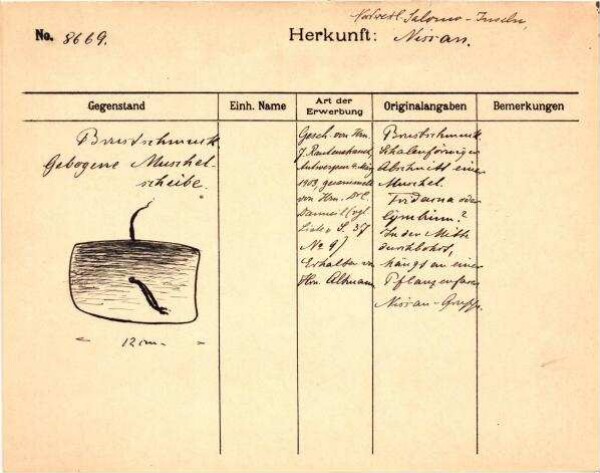 Nordwestl. Salomo-Inseln,
No. 8669.
Herkunft: Nissan.
Gegenstand
Einh. Name
Art der Erwerbung
Originalangaben
Bemerkungen
Brustschmuck
Gebogene Muschel-
scheibe.
12 cm.
Gesch. von Hrn.
J. Rautenstrauch,
Antwerpen
1903, gesammelt
von Hrn. Dr. C.
(vgl.
Liste S. 37
No 9)
Erhalten von
Hrn. Altmann
Brustschmuck
Schalenförmiger
Abschnitt einer
Muschel.
Tridacna oder
Cymbium?
In der Mitte
durchbohrt,
hängt an einer
Pflanzenfaser
Nissan-Gruppe.